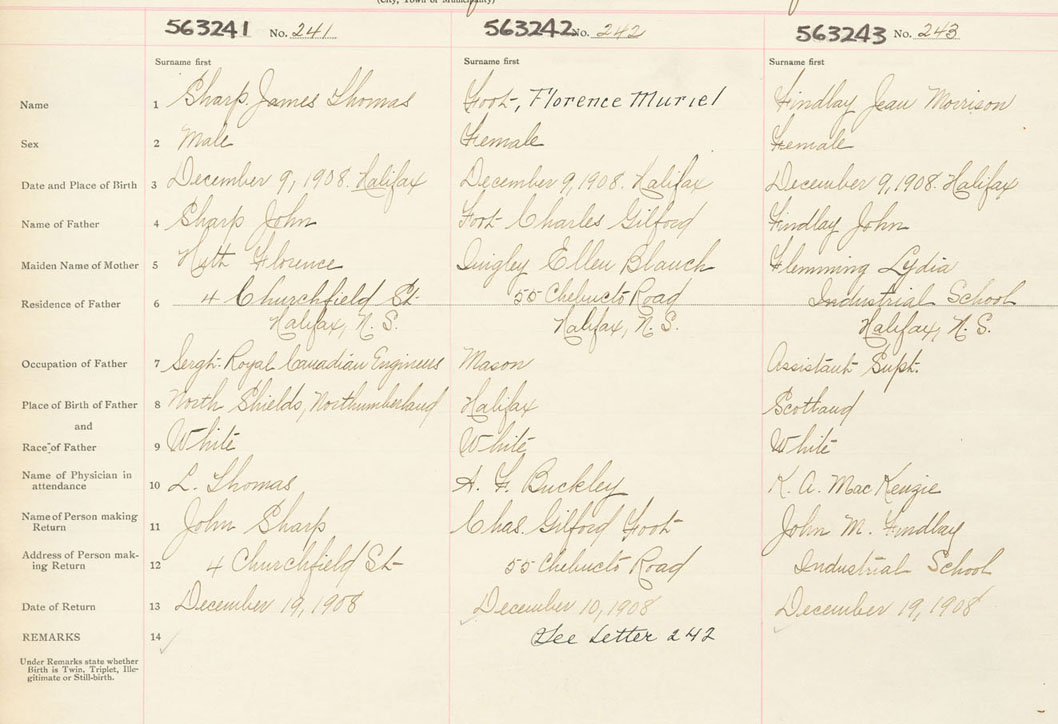 (City, Town or Municipality)
563241 No. 241 563242 No. 242 563243 No. 243
Surname first Surname first Surname first
Name 1 Sharp, James Thomas Foot, Florence Muriel Findlay Jean Morrison
Sex 2 Male Female Female
Date and Place of Birth 3 December 9, 1908. Halifax December 9, 1908. Halifax December 9, 1908. Halifax
Name of Father 4 Sharp John Foot Charles Gilford Findlay John
Maiden Name of Mother 5 Florence Quigley Ellen Blanch Flemming Lydia
Residence of Father 6 4 Churchfield St. 55 Chebucto Road Industrial School
Halifax, N. S. Halifax, N. S. Halifax, N. S.
Occupation of Father 7 Sergt. Royal Canadian Engineers Mason Assistant Supt.
Place of Birth of Father 8 North Shields, Northumberland Halifax Scotland
and
Race of Father 9 White White White
Name of Physician in
attendance 10 L. Thomas A. F. Buckley K. A. MacKenzie
Name of Person making
Return 11 John Sharp Chas. Gilford Foot John M. Findlay
Address of Person mak-
ing Return 12 4 Churchfield St 55 Chebucto Road Industrial School
Date of Return 13 December 19, 1908 December 10, 1908 December 19, 1908
REMARKS 14 See Letter 242
Under Remarks state whether
Birth is Twin, Triplet, Ille-
gitimate or Still-birth.